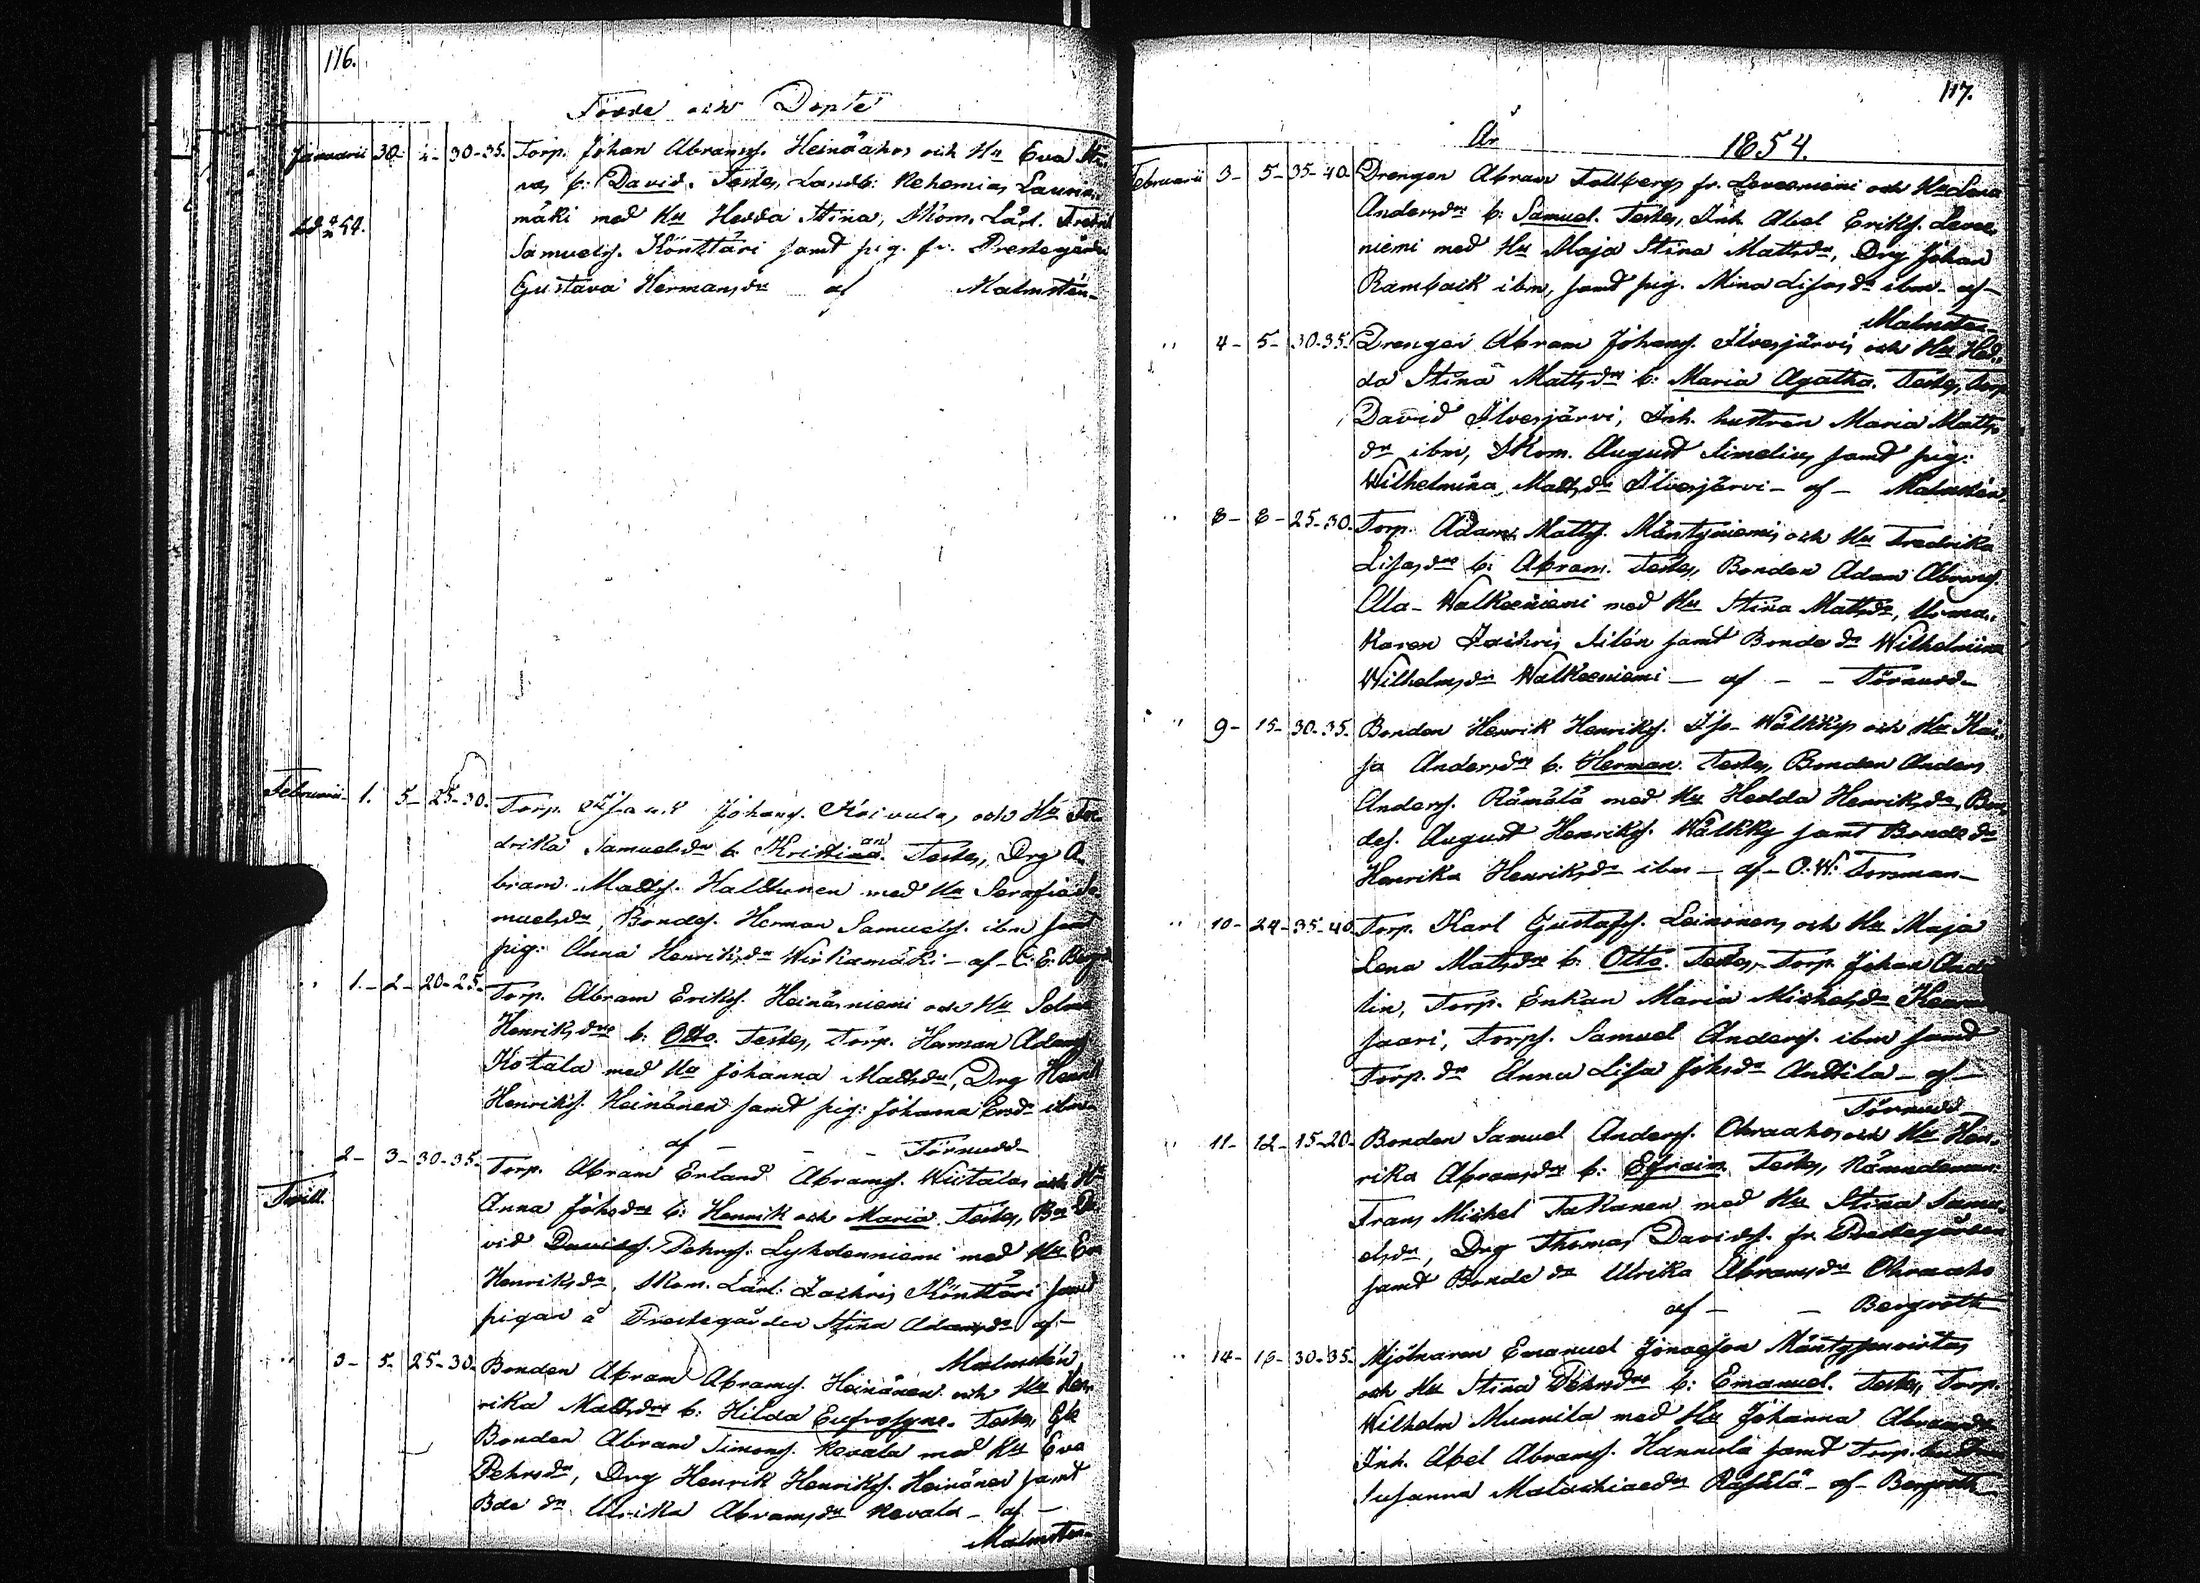 116.
Födde och Döpte
Januarii 30- 30-35. Torp. Johan Abrams. Heinäahos och Hu Eva
b: David. Testes, Landb:  Nehemias
mäki med Hu Hedda Stina, Skom. Lärl. Fredrik
54.
Samuels. Könttäri samt pig. fr. Prestegården
Gustava Hermansdr af Malmstén-
Februarii- 1. 5- 25-30. Torp. Johans. Koivulas och Hu
drika Samuelsdrs b. Kristina. Testes, Drg A
bram Matts. Halttunen med Hu Serafia Sa
muelsdr, Bondes. Herman Samuels. ibm samt
pig: Anna Henriksdr Wirkamäki- af- C. E. Bergroth
" 1.- 2- 20-25- Torp. Abram Eriks. Heinäsniemi och Hu
Henriksdrs b: Otto. Testes, Torp. Herman Adams.
Kotala med Hu Johanna Mattsdr, Drg Henrik
Henriks. Heinänen samt pig: Johanna Ersdr ibm-
af - - Törnudd-
2- 3- 30-35- Torp. Abram Erland Abrams. Wiitalas och Hu
Twill.
Anna Johsdrs b: Henrik och Maria. Testes, Bn Da
vid Davids. Pehrs. Lyhdenniemi med Hu Eva
Henriksdr, Skom. Lärl: Zachris Könttäri samt
pigan å Prestegården Stina Adamsdr af-
Malmstén
" 3- 5- 25-30- Bonden Abram Abrams. Heinänen och Hu Hen
rika Mattsdrs b: Hilda Eufrosyne. Testes, Gle
Bonden Abram Simons. Kevala med Hu Eva
Pehrsdr, Drg Henrik Henriks. Heinänen samt
Bde dr Ulrika Abramsdr Kevala- af-
Malmstén-
117.
År 1854.
Februarii 3- 5- 35-40- Drengen Abram Tallbergs fr. Leveeniemi och Hu Lena
Andersdrs b: Samuel. Testes, Inh. Abel Eriks. Levee
niemi med Hu Maja Stina Mattsdr, Drg Johan
ibm, samt pig. Mina Lisasdr ibm- af-
Malmstén-
" 4- 5- 30-35. Drengen Abram Johans. Ilvesjärvis och Hu Hed-
da Stina Mattsdrs b: Maria Agatha. Testes, Torp
David Ilvesjärvi, Inh. hustrun Maria Matts
dr ibm, Skom. August Simelius samt pig:
Wilhelmina Mattsdr Ilvesjärvi- af- Malmstén
" 8- 8- 25-30. Torp. Adam Matts. Mäntyniemis och Hu Fredrika
Lisasdrs b: Abram. Testes, Bonden Adam Abrams.
Ala- Walkeeniemi med Hu Stina Mattsdr, Urma-
karen Zachris Silén samt Bonde dr Wilhelmina
Wilhelmsdr Walkeeniemi - af - - Törnudd-
" 9- 15- 30-35. Bonden Henrik Henriks. Iso- Wälkkys och Hu Kai-
sa Andersdrs b: Herman. Testes, Bonden Anders
Anders. Rämälä med Hu Hedda Henriksdr, Bon
des. August Henriks. Wälkky samt Bonde dr
Henrika Henriksdr ibm - af- O. W. Forsman-
" 10- 24- 35-40 Torp. Karl Gustafs. Leinonens och Hu Maja
Lena Mattsdrs b: Otto. Testes, Torp. Johan
lin, Torp. Enkan Maria Michelsdr
saari, Torps. Samuel Anders. ibm samt
Torp. dr Anna Lisa Johsdr Anttila- af-
Törnudd
" 11- 12- 15-20- Bonden Samuel Anders. Ohraahos och Hu Hen-
rika Abramsdrs b: Efraim. Testes, Nämndeman
Frans Michel Takanen med Hu Stina Samu-
elsdr, Drg Thomas Davids. fr. Prestegården
samt Bonde dr Ulrika Abramsdr Ohraaho
af- - Bergroth
" 14- 16- 30-35- Mjölnaren Emanuel Jonasson
och Hu Stina Pehrsdrs b: Emanuel. Testes, Torp.
Wilhelm Munnila med Hu Johanna Abramsdr
Inh. Abel Abrams. Hannula samt Torp. hustrun
Susanna Malachiaedr Räsälä- af- Bergroth